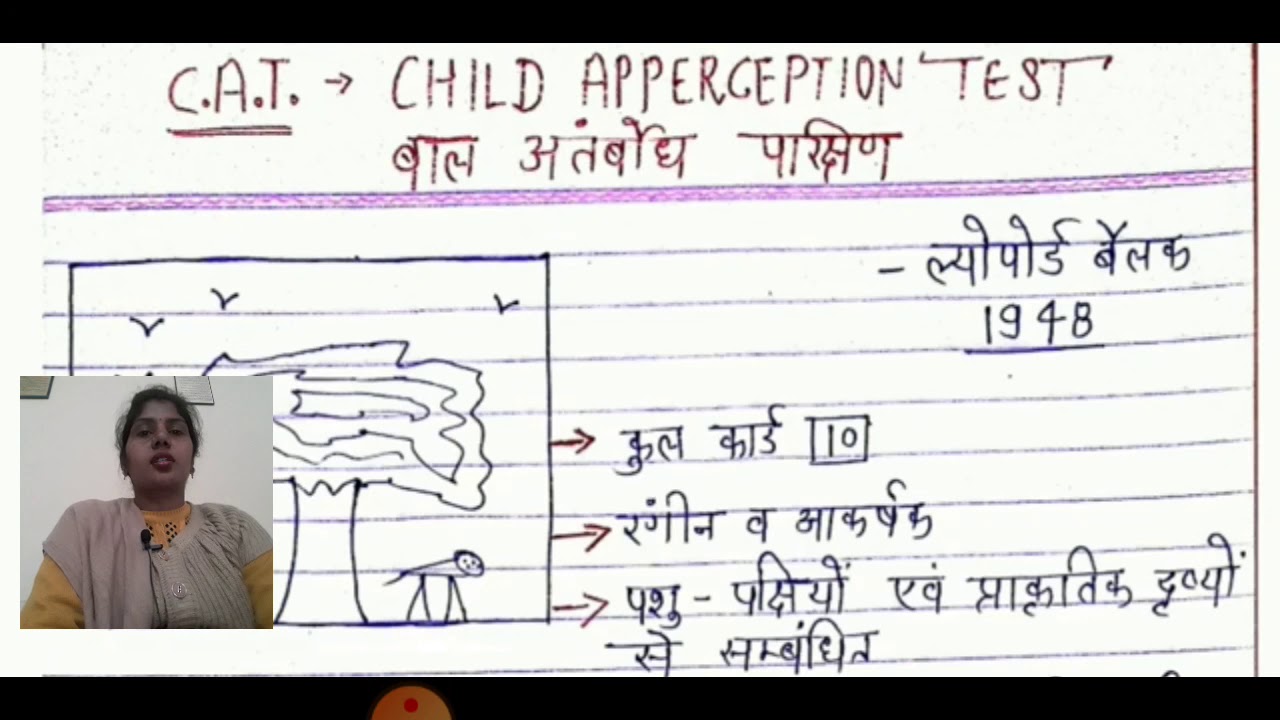 C.A.T. → CHILD APPERCEPTION TEST
बाल अतंर्बोध पारिक्षण
- ल्योपोर्ड बैलक
1948
→ कुल कार्ड 10
→ रंगीन व आकर्षक
→ पशु - पक्षियों एवं प्राकृतिक दृश्यों
से सम्बंधित